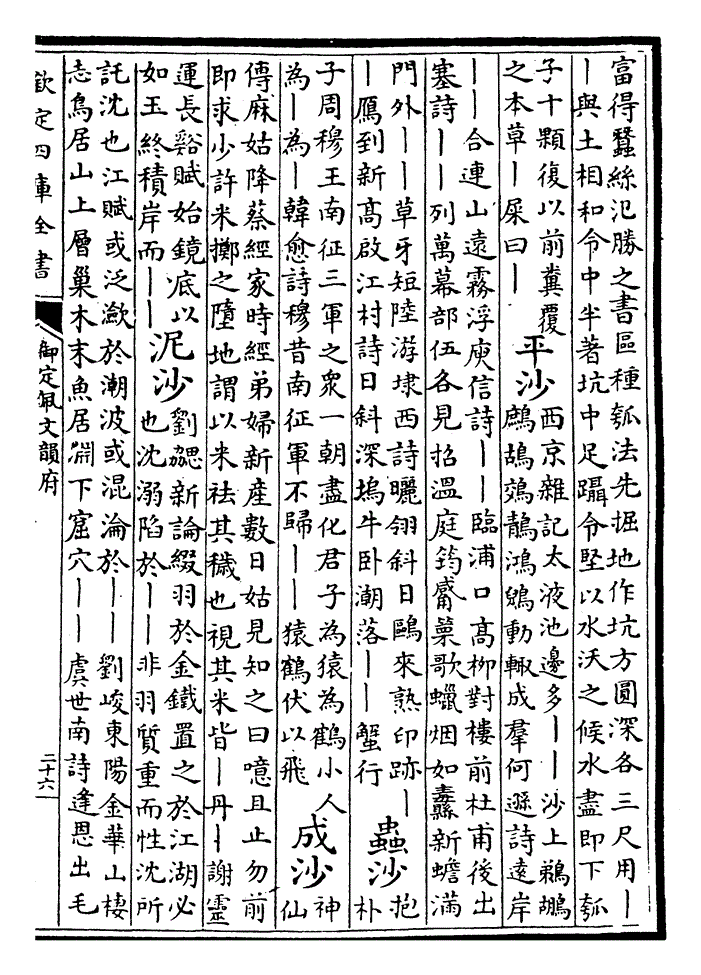 富得蠶絲氾勝之書區種瓠法先掘地作坑方圓深各三尺用丨
丨與土相和令中半著坑中足躡令堅以水沃之候水盡即下瓠
子十顆復以前糞覆
之本草丨屎曰丨
平沙
西京雜記太液池邊多丨丨沙上鵜鶘
鷓鴣鵁鶄鴻鶂動輒成羣何遜詩遠岸
丨丨合連山遠霧浮庾信詩丨丨臨浦口高柳對樓前杜甫後出
塞詩丨丨列萬幕部伍各見招溫庭筠觱篥歌蠟烟如纛新蟾滿
門外丨丨草牙短陸游埭西詩曬翎斜日鷗來熟印跡丨
丨鴈到新高啟江村詩日斜深塢牛卧潮落丨丨蟹行
蟲沙
抱
朴
子周穆王南征三軍之衆一朝盡化君子為猿為鶴小人
為丨為丨韓愈詩穆昔南征軍不歸丨丨猿鶴伏以飛
成沙
神
仙
傳麻姑降蔡經家時經弟婦新產數日姑見知之曰噫且止勿前
即求少許米擲之墮地謂以米祛其穢也視其米皆丨丹丨謝靈
運長谿賦始鏡底以
如玉終積岸而丨丨
泥沙
劉勰新論綴羽於金鐵置之於江湖必
也沈溺陷於丨丨非羽質重而性沈所
託沈也江賦或泛瀲於潮波或混淪於丨丨劉峻東陽金華山棲
志鳥居山上層巢木末魚居淵下窟穴丨丨虞世南詩逢恩出毛
欽定四庫全書
御定佩文韻府
二十六